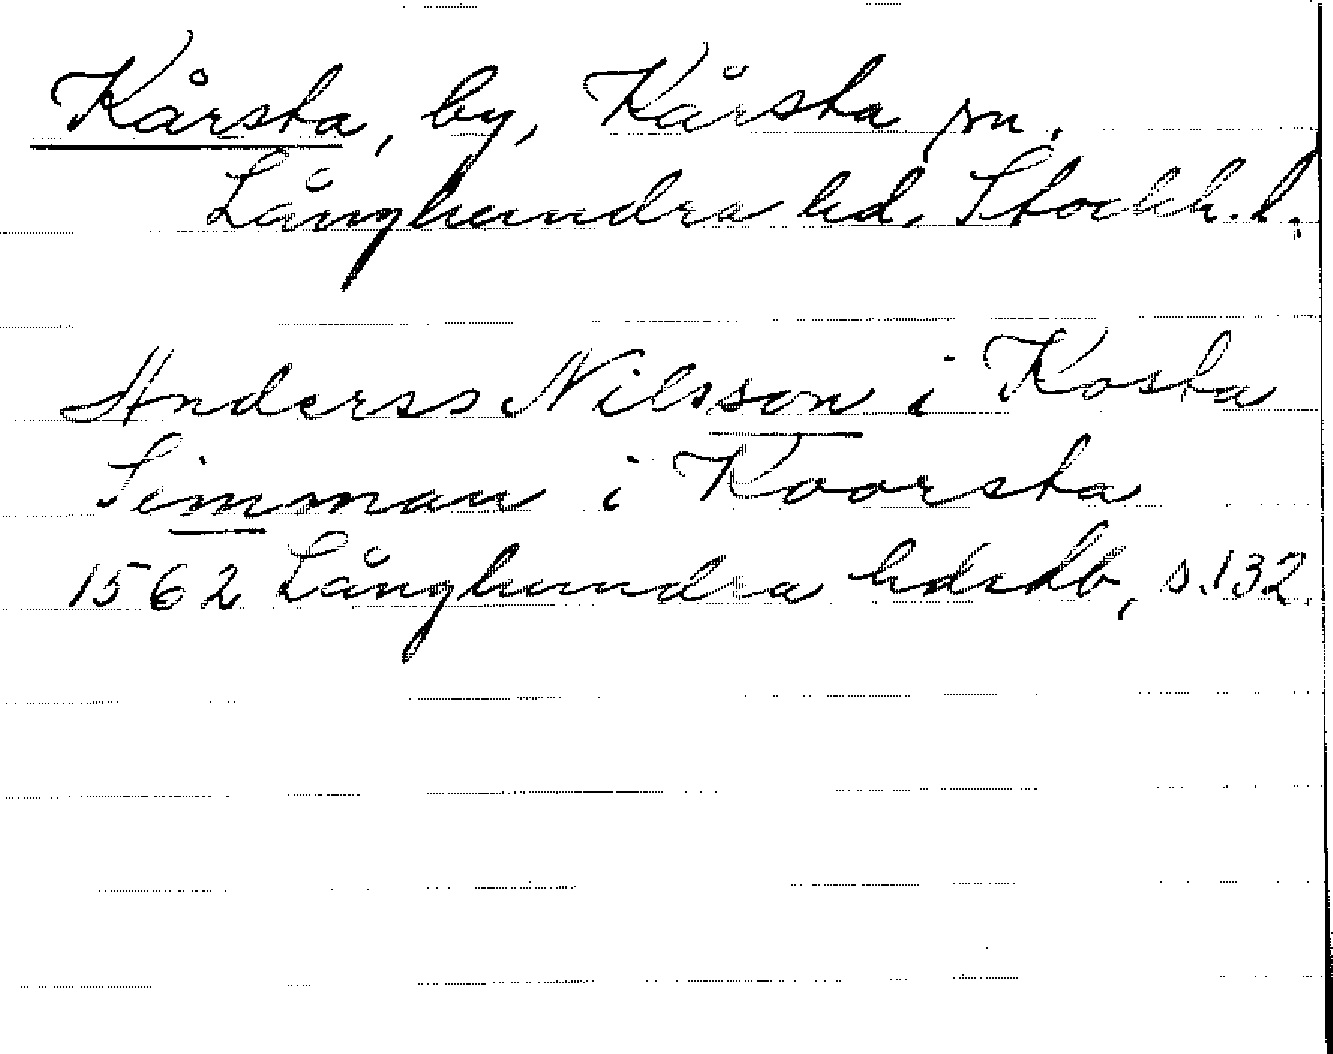 Kårsta, by, Kårsta sn.
Långhundra hd, Stockh. l.
Anderss Nilsson i Kosta
Simman i Koorsta
1562 Långhundra hdskb, s.132.